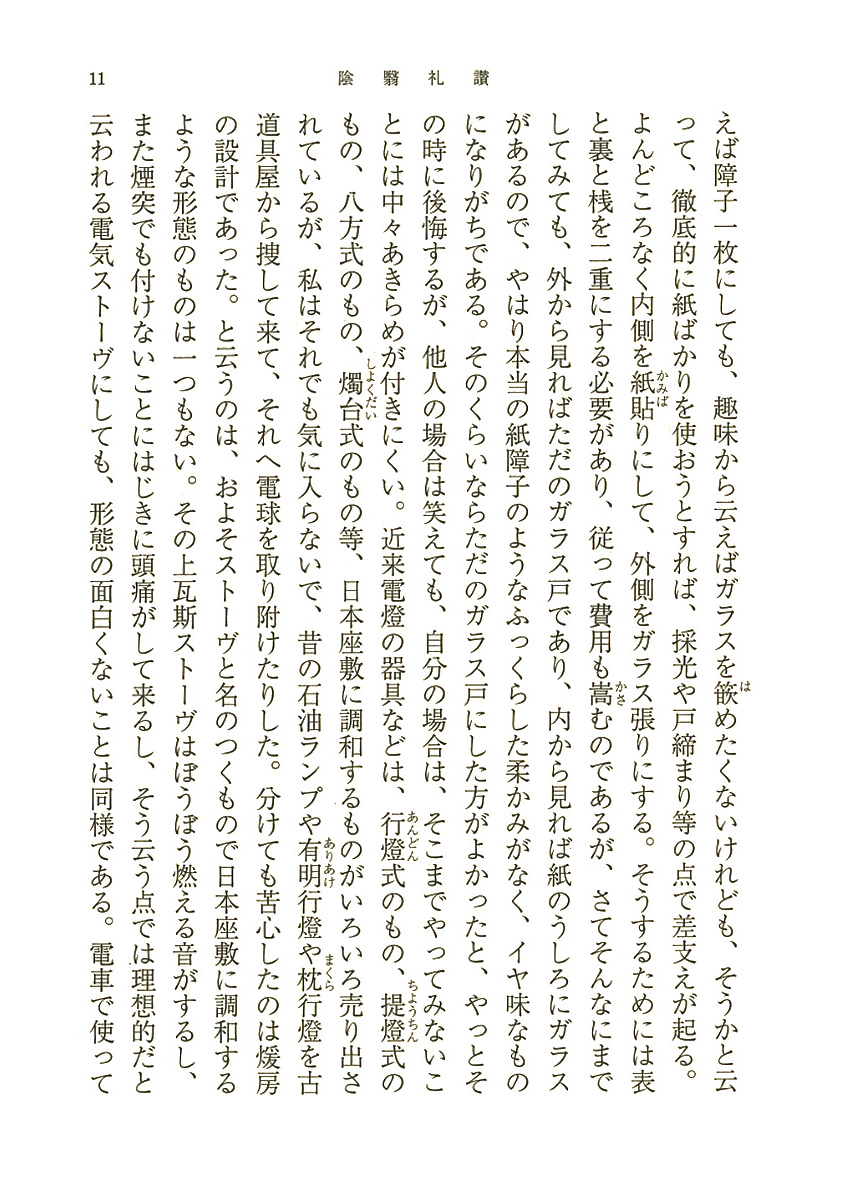 11
陰翳礼讃
えば障子一枚にしても、趣味から云えばガラスを嵌めたくないけれども、そうかと云
って、徹底的に紙ばかりを使おうとすれば、採光や戸締まり等の点で差支えが起る。
よんどころなく内側を紙貼りにして、外側をガラス張りにする。そうするためには表
と裏と桟を二重にする必要があり、従って費用も嵩むのであるが、さてそんなにまで
してみても、外から見ればただのガラス戸であり、内から見れば紙のうしろにガラス
があるので、やはり本当の紙障子のようなふっくらした柔かみがなく、イヤ味なもの
になりがちである。そのくらいならただのガラス戸にした方がよかったと、やっとそ
の時に後悔するが、他人の場合は笑えても、自分の場合は、そこまでやってみないこ
とには中々あきらめが付きにくい。近来電燈の器具などは、行燈式のもの、提燈式の
もの、八方式のもの、燭台式のもの等、日本座敷に調和するものがいろいろ売り出さ
れているが、私はそれでも気に入らないで、昔の石油ランプや有明行燈や枕行燈を古
道具屋から捜して来て、それへ電球を取り附けたりした。分けても苦心したのは煖房
の設計であった。と云うのは、およそストーヴと名のつくもので日本座敷に調和する
ような形態のものは一つもない。その上瓦斯ストーヴはぼうぼう燃える音がするし、
また煙突でも付けないことにはじきに頭痛がして来るし、そう云う点では理想的だと
云われる電気ストーヴにしても、形態の面白くないことは同様である。電車で使って
は
かみば
かさ
あんどん
ちょうちん
しよくだい
ありあけ
まくら